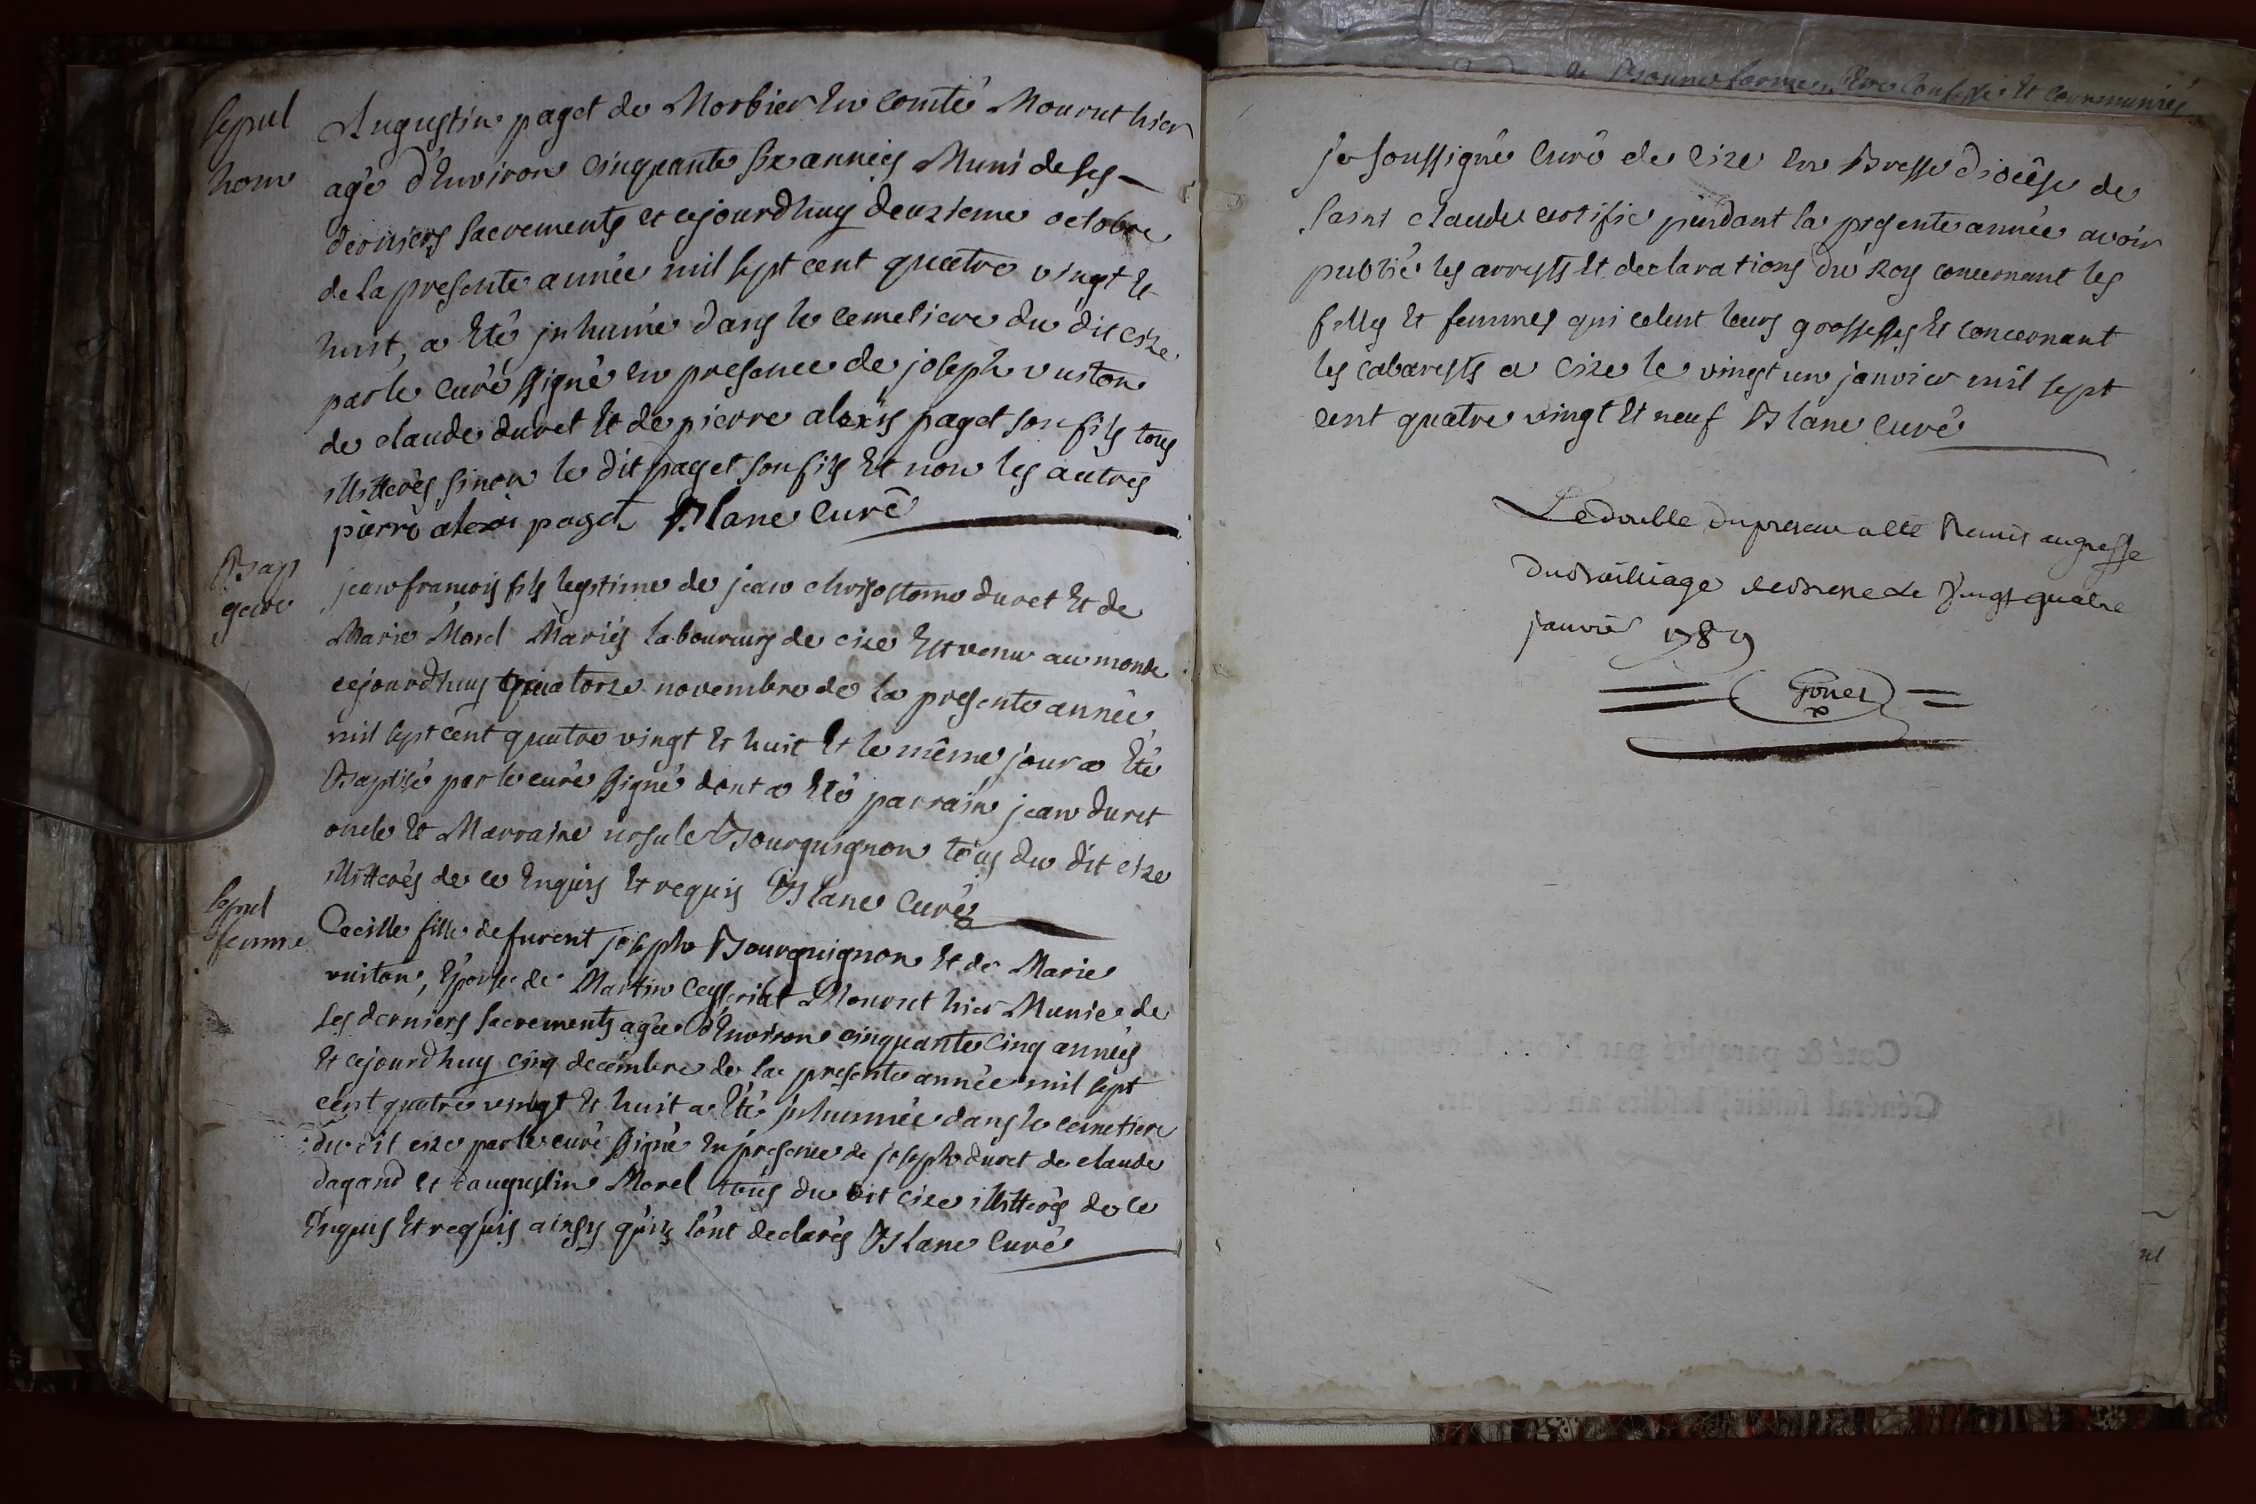 sepul
hom
Augustin paget de Morbier En Comté Mourut hier
agé d'Environ cinquante six années Muni de ses -
derniers sacrements et cejourdhuy deuxieme octobre
de la presente année mil sept cent quatre vingt Et
huit, a Eté jnhumé dans le cemetiere du dit cize
par le curé signé en presence de joseph vuiton
de claude duret Et de pierre alexis paget son fils tous
illitterés sinon le dit paget son fils Et non les autres
pierre alexi paget Blanc Curé
Bap
garc
jean francois fils legitime de jean chrisostome duret Et de
Marie Morel Mariés laboureurs de cize Est venu au monde
cejourdhuy quatorze novembre de la presente année
mil sept cent quatre vingt Et huit Et le même jour a Eté
Baptisé par le curé signé dont a Eté parrain jean duret
oncle Et Marraine ursule Bourguignon tous du dit cize
illitterés de ce Enquis Et requis Blanc Curé
sepul
femme
Cecille fille de furent joseph Bourguignon Et de Marie
vuiton, Epouse de Martin Ceyseriat Mourut hier Munie de
ses derniers sacrements agée d'Environ cinquante cinq années
Et cejourdhuy cinq decembre de la presente année mil sept
cent quatre vingt Et huit a Eté jnhumée dans le cemetiere
du dit cize par le curé signé En presence de joseph duret de claude
dagand et d'augustin Morel tous du dit cize illitterés de ce
Enquis Et requis ainsy qu'ils l'ont declarés Blanc Curé
Bonne Confessé Et Communiés
je soussigné Curé de Cize En Bresse diocèse de
saint claude certifie pendant la presente année avoir
publié les arrests Et declarations du Roy concernant les
filles Et femmes qui celent leurs grossesses Et concernant
les cabarests a Cize le vingt un janvier mil sept
cent quatre vingt Et neuf Blanc Curé
Le double du present a été Remis au greffe
du Bailliage de Bresse Le vingt quatre
janvier 1789